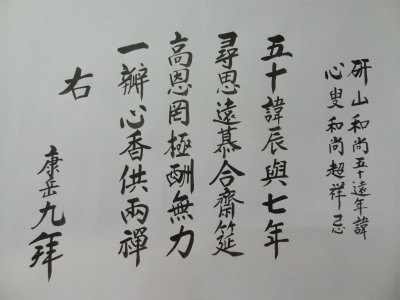 研山和尚五十遠年諱
心叟和尚超祥忌
五十諱辰與七年
尋思遠慕合齋筵
高恩罔極酬無力
一瓣心香供兩禪
右
康岳九拜